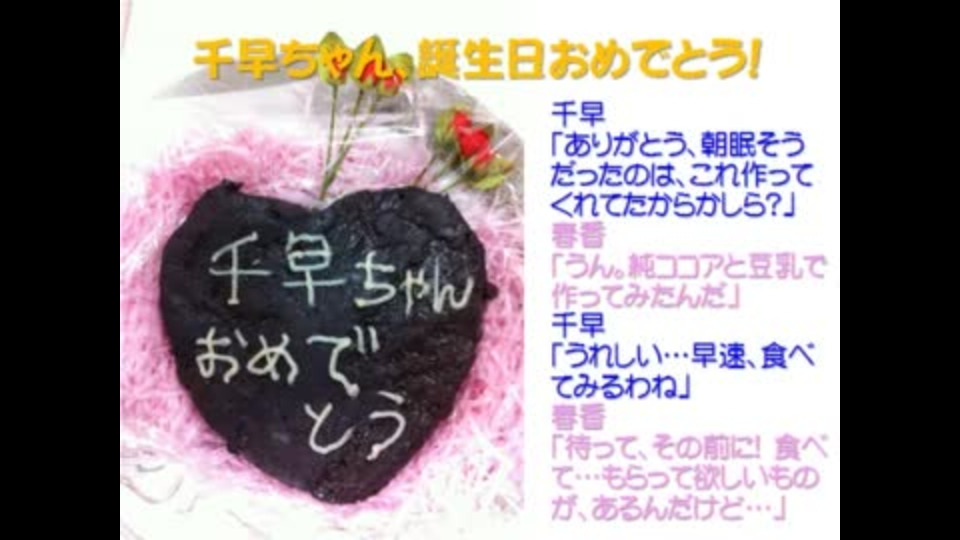 千早ちゃん、誕生日おめでとう!
千早ちゃん
おめで
とう
千早
「ありがとう、朝眠そう
だったのは、これ作って
くれてたからかしら?」
春香
「うん。純ココアと豆乳で
作ってみたんだ」
千早
「うれしい…早速、食べ
てみるわね」
春香
「待って、その前に! 食べ
て…もらって欲しいもの
が、あるんだけど…」